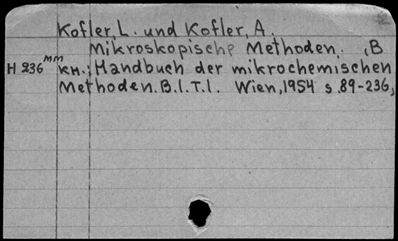 Kofler, L. und Kofler, A.
Mikroskopische Methoden. , B
H 236 mm кн.: Handbuch der mikrochemischen
Methoden. B.I. T.I. Wien, 1954 s. 89-236,